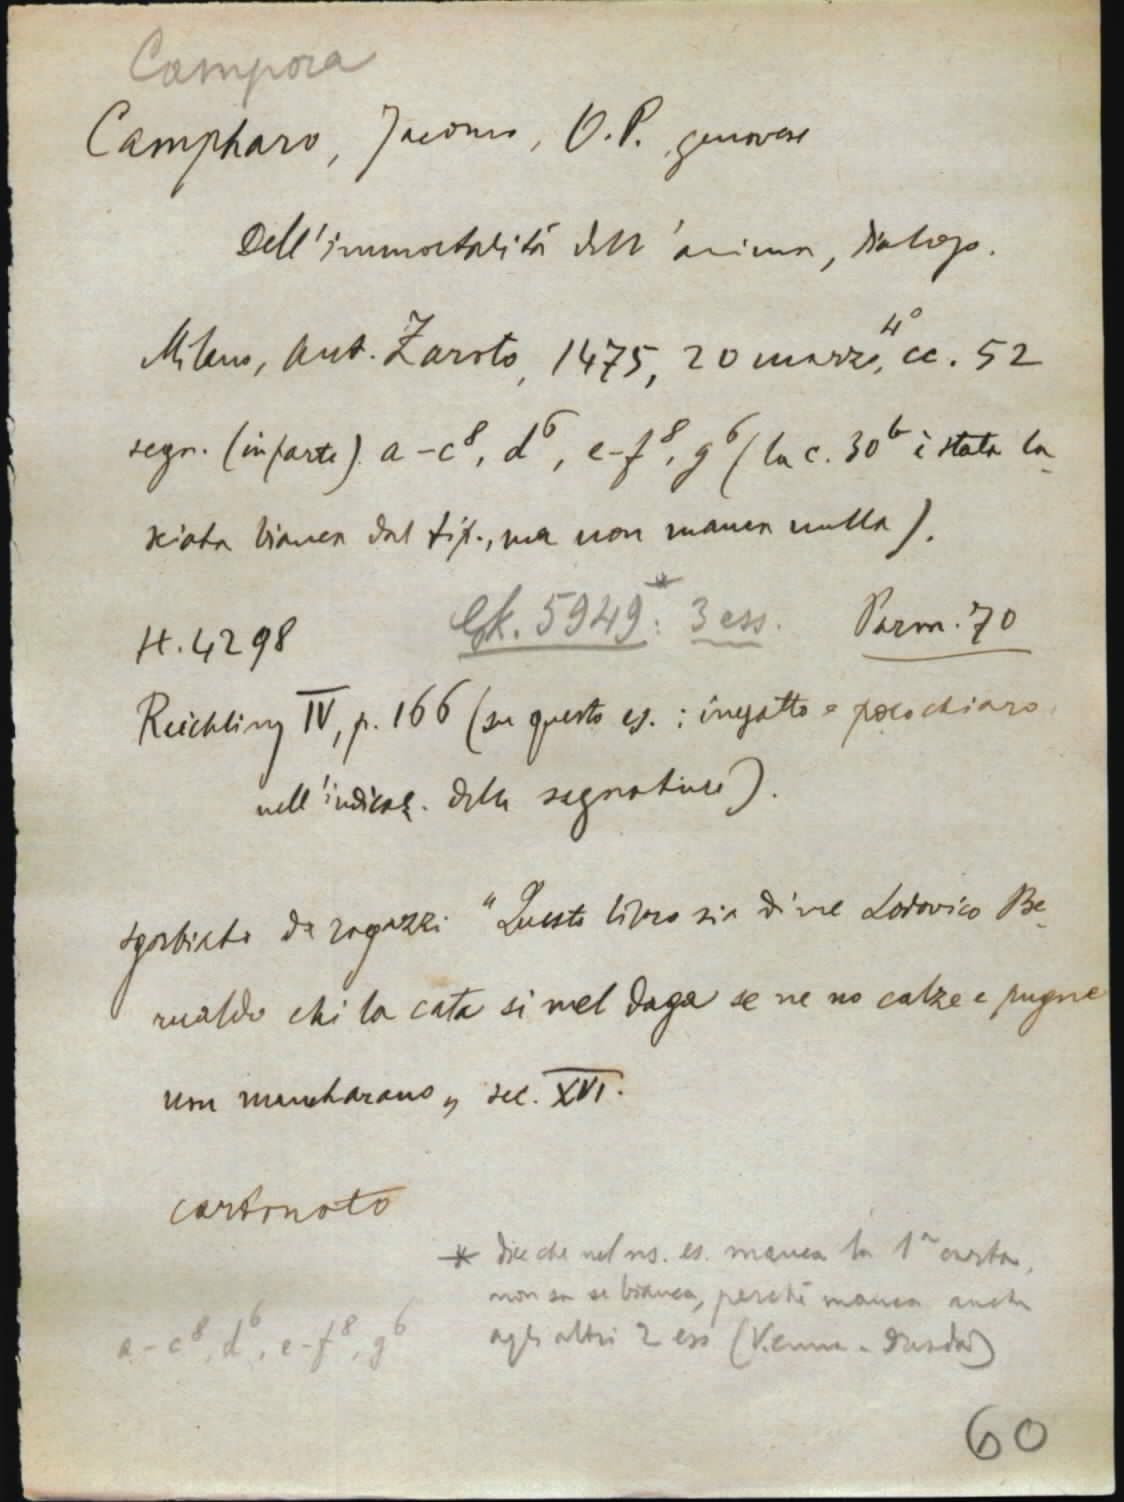 Campora
Campharo, Jacomo, O. P. genovese
Dell'immortalità dell'anima, dialogo.
Milano, Ant. Zaroto, 1475, 20 marzo, 4° cc. 52
segn. (in parte) a-c⁸, d⁶, e-f⁸, g⁶ (la c. 30ᵇ è stata la-
sciata bianca dal tip., ma non manca nulla).
H. 4298 Gk. 5949*: 3 ess. Parm. 70
Reichling IV, p. 166 (su questo es.: inesatto e poco chiaro
nell'indicaz. delle segnature).
sgorbiato da ragazzi "Questo libro sia di me Lodovico Be-
rualdo chi la cata si mel daga se ne no calze e pugne
non mancharano„ sec. XVI.
cartonato
* dice che nel ns. es. manca la 1ª carta,
non sa se bianca, perchè manca anche
agli altri 2 ess (Vienna - Dresda)
a-c⁸, d⁶, e-f⁸, g⁶
60